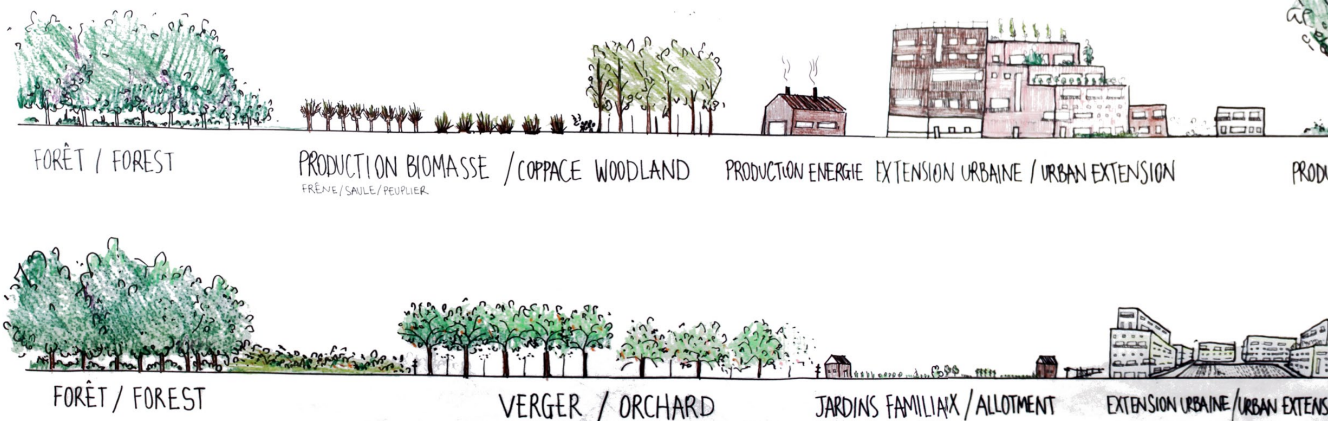 FORÊT / FOREST
PRODUCTION BIOMASSE / COPPACE WOODLAND
FRÊNE/SAULE/PEUPLIER
PRODUCTION ENERGIE
EXTENSION URBAINE / URBAN EXTENSION
PRODU
FORÊT / FOREST
VERGER / ORCHARD
JARDINS FAMILIAIX / ALLOTMENT
EXTENSION URBAINE/URBAN EXTENS